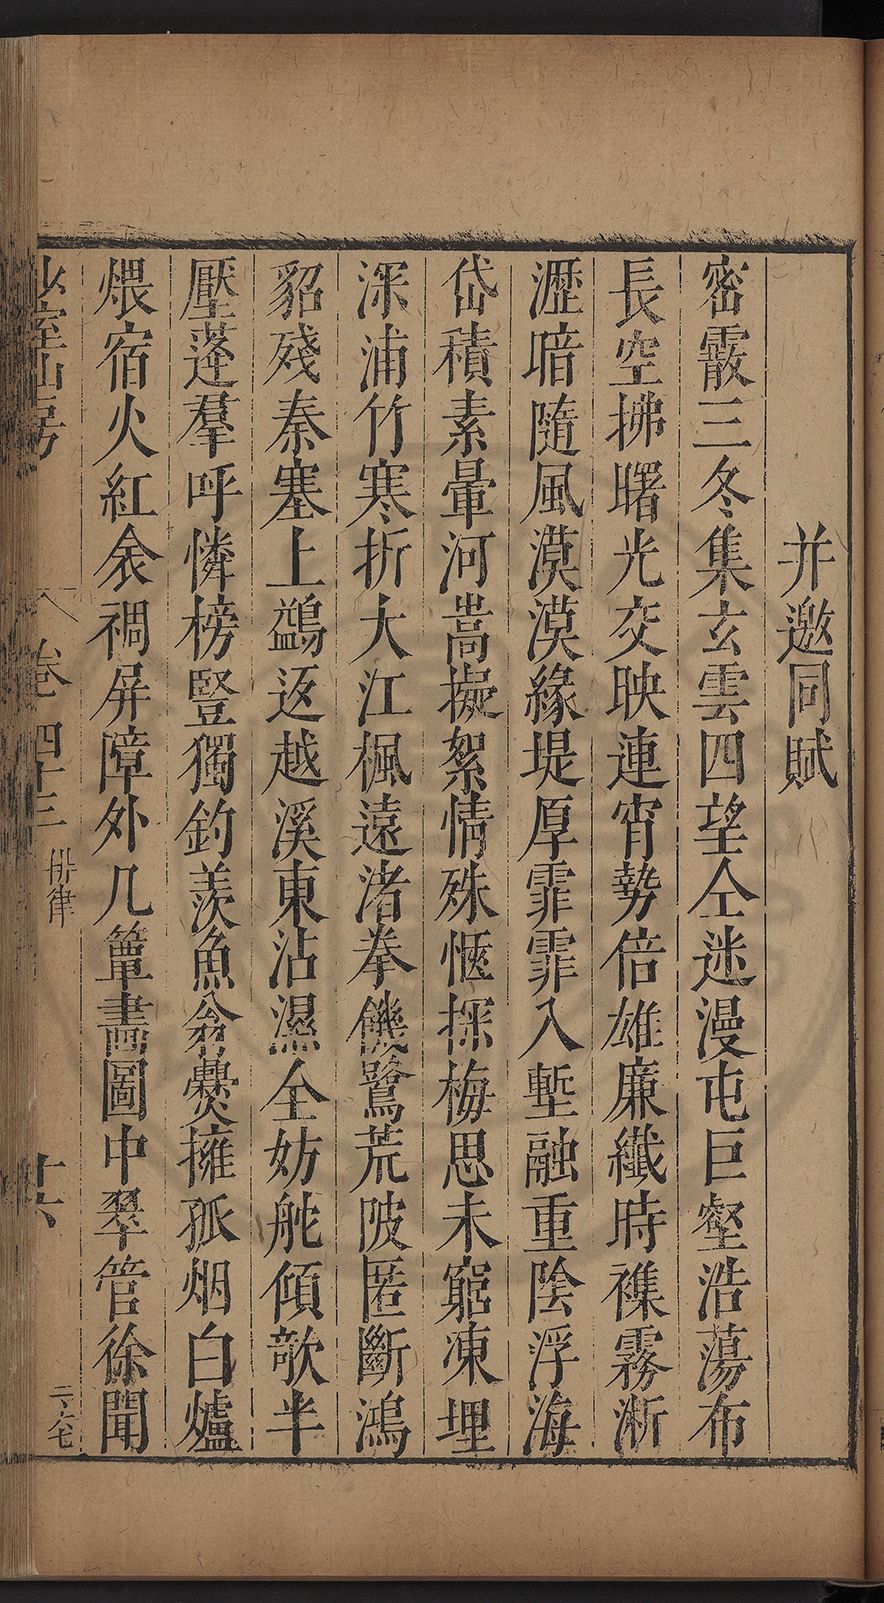 并邀同賦
密霰三冬集玄雲四望仝迷漫屯巨壑浩蕩布
長空拂曙光交映連宵勢倍雄廉纖時襍霧淅
瀝暗隨風漠漠緣堤厚霏霏入塹融重陰浮海
岱積素暈河嵩擬絮情殊愜探梅思未窮凍埋
深浦竹寒折大江楓遠渚拳饑鷺荒陂匿斷鴻
貂殘秦塞上鷁返越溪東沾濕全妨舵傾欹半
壓蓬羣呼憐榜豎獨釣羨魚翁爨擁孤烟白爐
煨宿火紅衾裯屏障外几簟畫圖中翠管徐聞
少室山房
卷四十三
排律
廿六